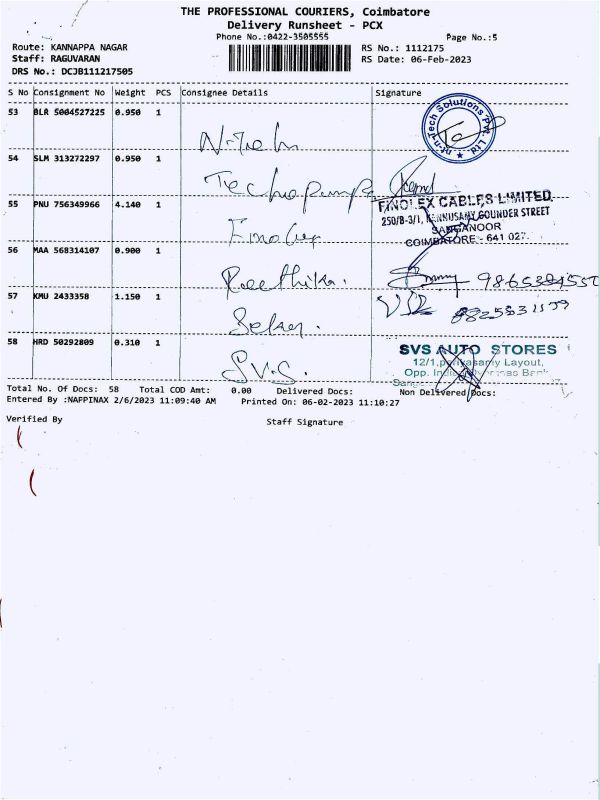 THE PROFESSIONAL COURIERS, Coimbatore
Delivery Runsheet - PCX
Phone No.:0422-3505555
Page No.:5
Route: KANNAPPA NAGAR
RS No.: 1112175
Staff: RAGUVARAN
RS Date: 06-Feb-2023
DRS No.: DCJB111217505
S No Consignment No Weight PCS Consignee Details Signature
53 BLR 5004527225 0.950 1
Tech Solutions Pvt. Ltd.
54 SLM 313272297 0.950 1 Techopumps
55 PNU 756349966 4.140 1 Finolex
FINOLEX CABLES LIMITED
250/B-3/1, KANNUSAMY GOUNDER STREET
SANGANOOR
COIMBATORE - 641 027.
56 MAA 568314107 0.900 1 Reethika.
57 KMU 2433358 1.150 1 Selser.
58 HRD 50292809 0.310 1 S.V.S.
SVS AUTO STORES
Layout,
Opp.
Total No. Of Docs: 58 Total COD Amt: 0.00 Delivered Docs: Non Delivered Docs:
Entered By :NAPPINAX 2/6/2023 11:09:40 AM Printed On: 06-02-2023 11:10:27
Verified By
Staff Signature